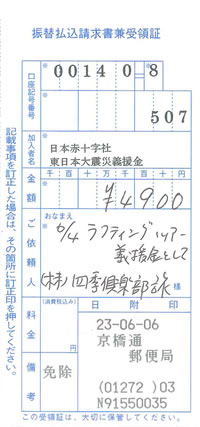 振替払込請求書兼受領証
口座記号番号
00140-8
507
加入者名
日本赤十字社
東日本大震災義援金
金額
千百十万千百十円
¥4900
ご依頼人
おなまえ
6/4 ラフティングツアー
義援金として
(株)四季倶楽部 様
料金
(消費税込み)
円
日附印
23-06-06
京橋通
郵便局
備考
免除
(01272)03
N91550035
この受領証は、大切に保管してください。
記載事項を訂正した場合は、その箇所に訂正印を押してください。